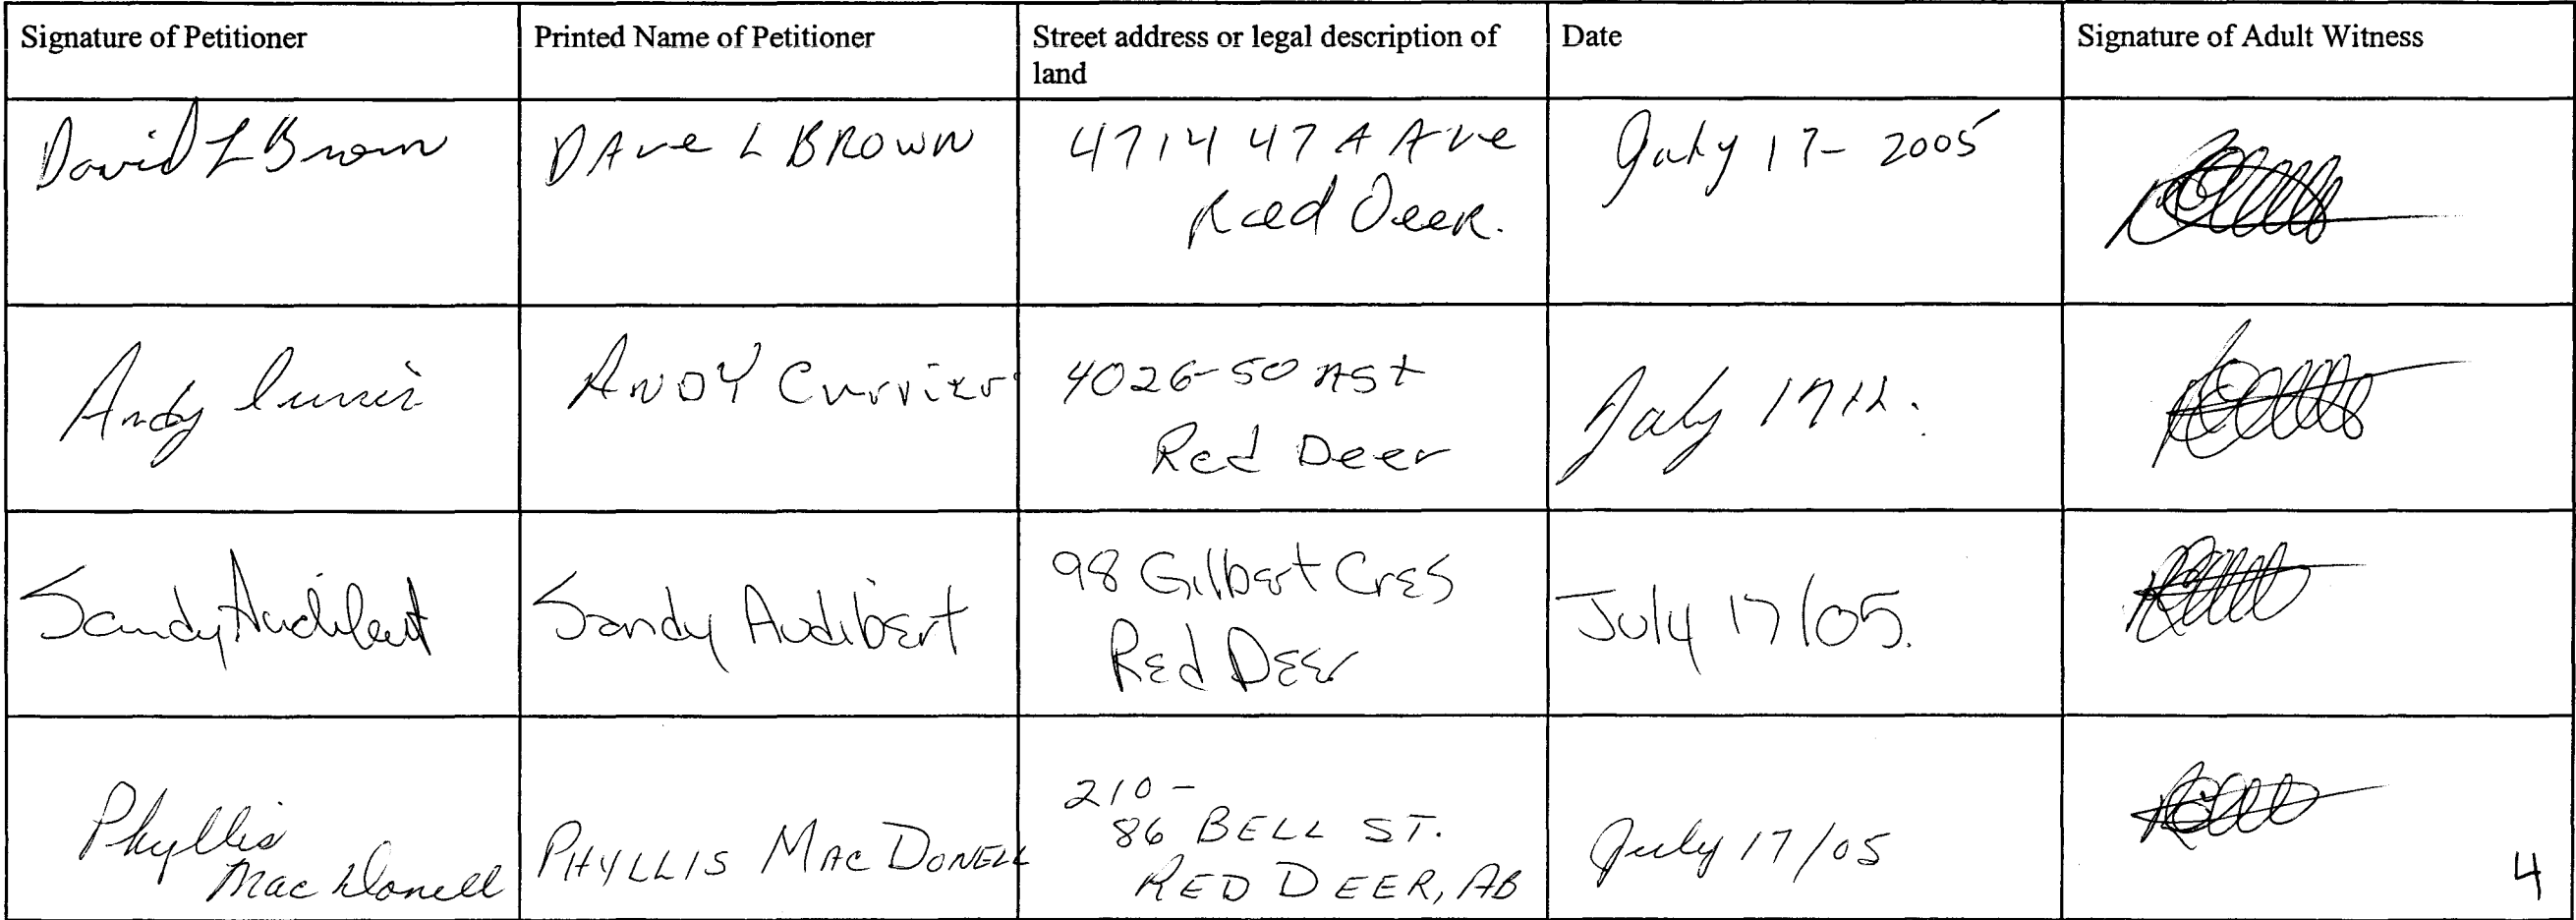 Signature of Petitioner
Printed Name of Petitioner
Street address or legal description of
land
Date
Signature of Adult Witness
David L Brown
DAve L BROWN
4714 47 A Ave
Red Deer.
July 17- 2005
Andy Currier
ANDY Currier
4026-50 A St
Red Deer
July 17th.
Sandy Audibert
Sandy Audibert
98 Gilbert Cres
Red Deer
July 17/05.
Phyllis
MacDonell
PHYLLIS MACDONELL
210-
86 BELL ST.
RED DEER, AB
July 17/05
4